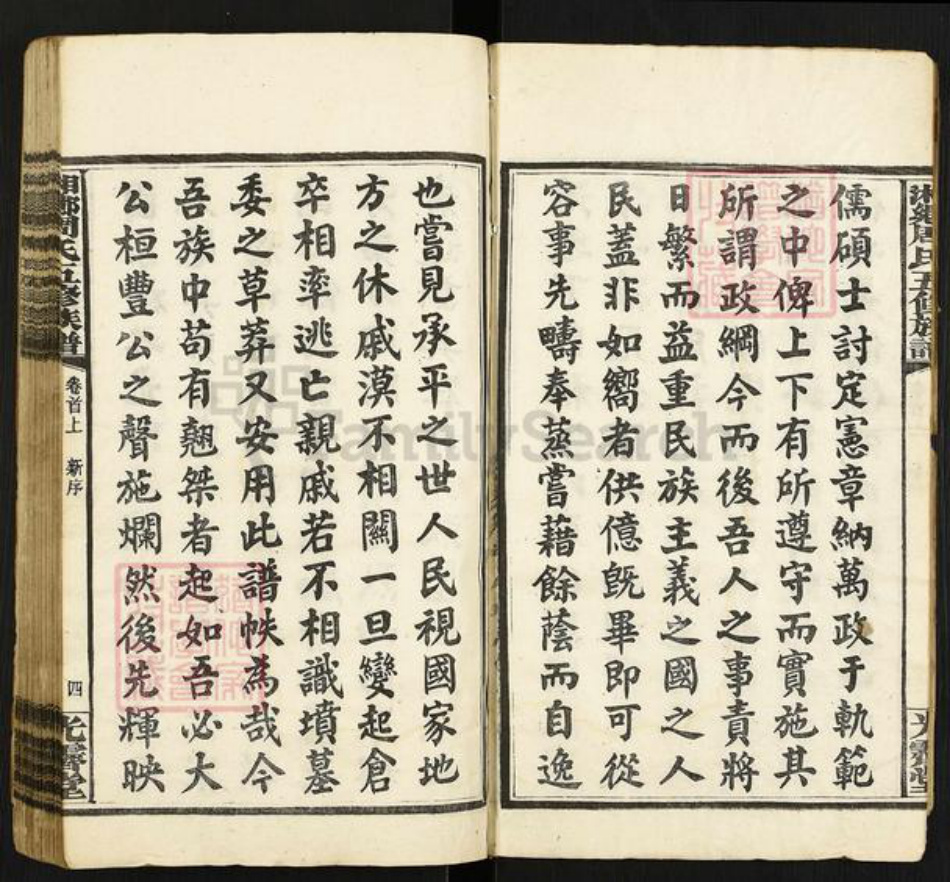 儒碩士討定憲章納萬政于軌範
之中俾上下有所遵守而實施其
所謂政綱今而後吾人之事責將
日繁而益重民族主義之國之人
民蓋非如嚮者供億既畢即可從
容事先疇奉蒸嘗藉餘蔭而自逸
也嘗見承平之世人民視國家地
方之休戚漠不相關一旦變起倉
卒相率逃亡親戚若不相識墳墓
委之草莽又安用此譜帙為哉今
吾族中苟有翹桀者起如吾必大
公桓豐公之聲施爛然後先輝映
湘鄉周氏五修族譜
卷首上
新序
四
光霽堂
FamilySearch